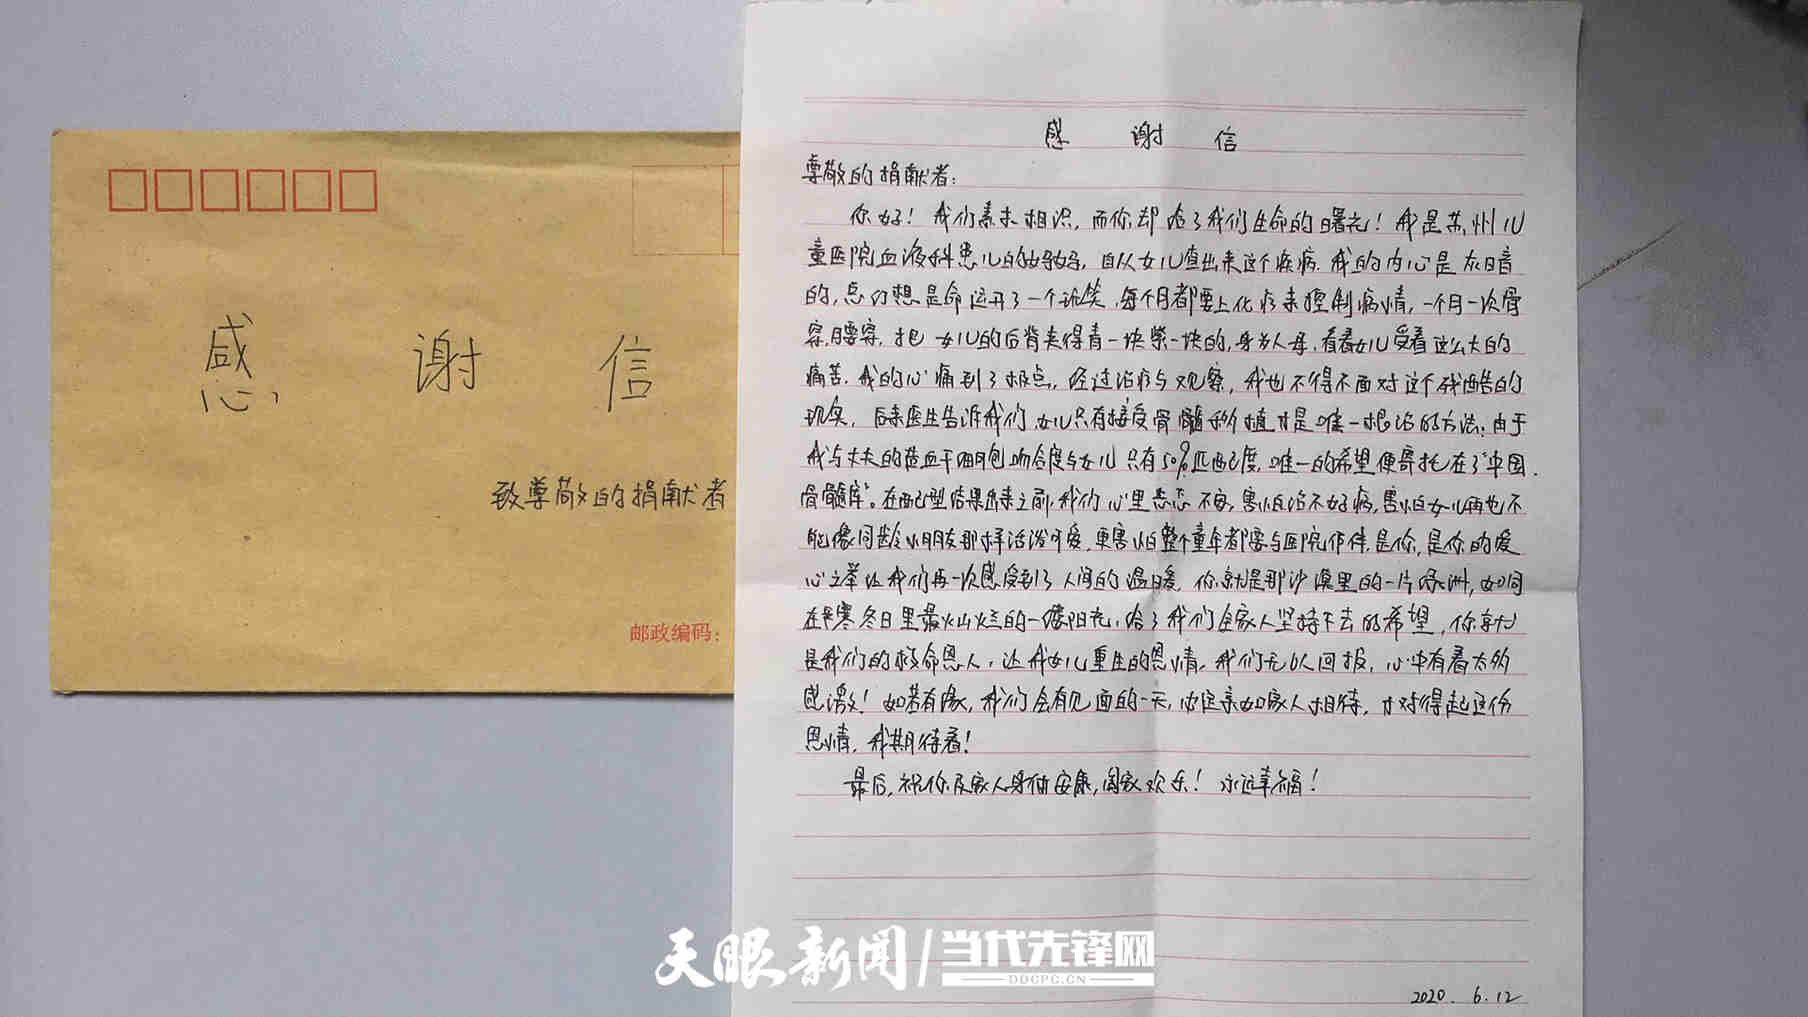 感 谢 信
致尊敬的捐献者
邮政编码：
感 谢 信
尊敬的捐献者：
你好！我们素未相识，而你却给了我们生命的曙光！我是苏州儿
童医院血液科患儿的妈妈，自从女儿查出来这个疾病，我的内心是灰暗
的，总幻想是命运开了一个玩笑，每个月都要上化疗来控制病情，一个月一次骨
穿，腰穿，把女儿的后背夹得青一块紫一块的，身为人母，看着女儿受着这么大的
痛苦，我的心痛到了极点，经过治疗与观察，我也不得不面对这个残酷的
现实，后来医生告诉我们，女儿只有接受骨髓移植才是唯一根治的方法；由于
我与丈夫的造血干细胞吻合度与女儿只有50%匹配度，唯一的希望便寄托在了“中国
骨髓库”。在配型结果出来之前，我们心里忐忑不安，害怕治不好病，害怕女儿再也不
能像同龄小朋友那样活泼可爱，更害怕整个童年都要与医院作伴，是你，是你的爱
心之举让我们再一次感受到了人间的温暖，你就是那沙漠里的一片绿洲，如同
在寒冬日里最灿烂的一缕阳光，给了我们全家人坚持下去的希望，你就
是我们的救命恩人，让我女儿重生的恩情，我们无以回报，心中有着太多
感激！如若有缘，我们会有见面的一天，必定亲如家人相待，才对得起这份
恩情，我期待着！
最后，祝你及家人身体安康，阖家欢乐！永远幸福！
2020.6.12
天眼新闻/当代先锋网
DDCPC.CN